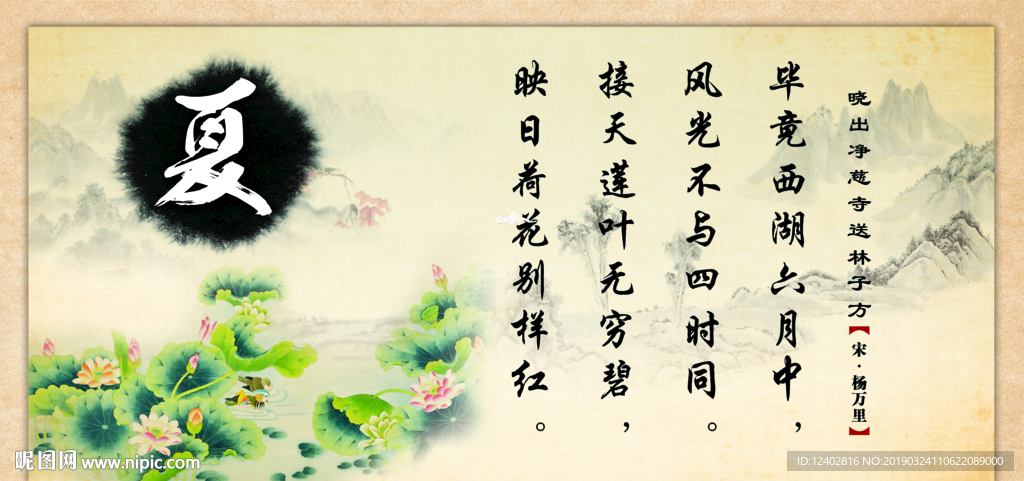 夏
晓出净慈寺送林子方【宋·杨万里】
毕竟西湖六月中，
风光不与四时同。
接天莲叶无穷碧，
映日荷花别样红。
昵图网 www.nipic.com
ID:12402816 NO:20190324110622089000